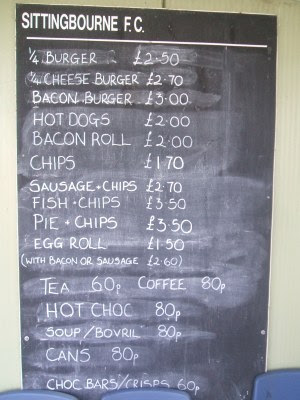 SITTINGBOURNE F.C.
¼ BURGER - £2.50
¼ CHEESE BURGER £2.70
BACON BURGER £3.00
HOT DOGS £2.00
BACON ROLL £2.00
CHIPS £1.70
SAUSAGE + CHIPS £2.70
FISH + CHIPS £3.50
PIE + CHIPS £3.50
EGG ROLL £1.50
(WITH BACON OR SAUSAGE £2.60)
TEA 60p COFFEE 80p
HOT CHOC 80p
SOUP/BOVRIL 80p
CANS 80p
CHOC BARS/CRISPS 60p